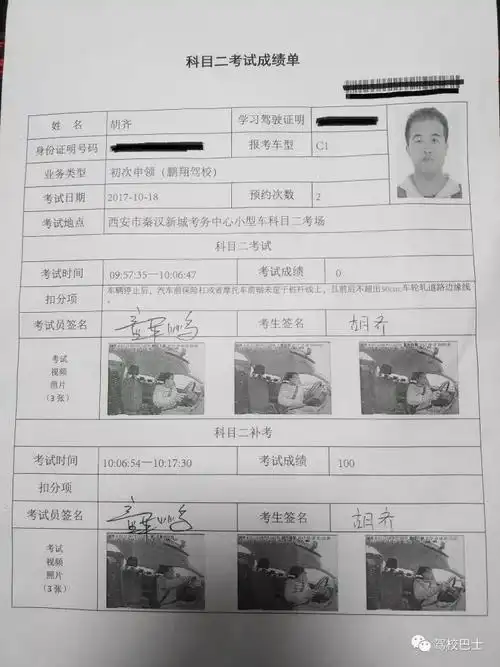 科目二考试成绩单
姓 名 胡齐 学习驾驶证明
身份证明号码 报考车型 C1
业务类型 初次申领（鹏翔驾校）
考试日期 2017-10-18 预约次数 2
考试地点 西安市秦汉新城考务中心小型车科目二考场
科目二考试
考试时间 09:57:35—10:06:47 考试成绩 0
扣分项 车辆停止后，汽车前保险杠或者摩托车前轴未定于桩杆线上，且前后不超出50cm;车轮轧道路边缘线。
考试员签名 考生签名 胡齐
考试
视频
照片
（3 张）
科目二补考
考试时间 10:06:54—10:17:30 考试成绩 100
扣分项
考试员签名 考生签名 胡齐
考试
视频
照片
（3 张）
驾校巴士